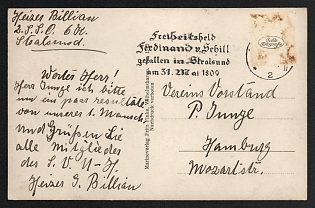 Heizer Billian
2. S. S. O. 6 K.
Stralsund.
Freiheitsheld
Ferdinand v. Schill
gefallen in Stralsund
am 31. Mai 1809
2
Wertes Herr!
Herr Junge ich bitte
um ein paar resultate
von unsere 1. Mansch.
und Grüßen Sie
alle Mitglieder
des S. V. U-H.
Heizer J. Billian
Vereins Vorstand
P. Junge
Hamburg
Mozartstr.